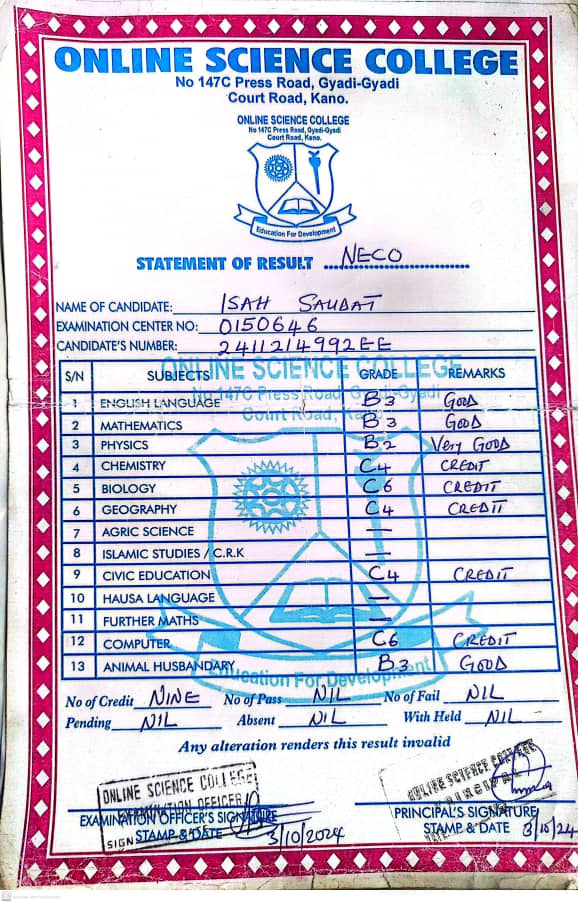 ONLINE SCIENCE COLLEGE
No 147C Press Road, Gyadi-Gyadi
Court Road, Kano.
ONLINE SCIENCE COLLEGE
No 147C Press Road, Gyadi-Gyadi
Court Road, Kano.
Education For Development
STATEMENT OF RESULT NECO
NAME OF CANDIDATE: ISAH SAUDAT
EXAMINATION CENTER NO: 0150646
CANDIDATE'S NUMBER: 2411214992EE
ONLINE SCIENCE COLLEGE
No 147C Press Road, Gyadi-Gyadi
Court Road, Kano
S/N SUBJECTS GRADE REMARKS
1 ENGLISH LANGUAGE B3 GOOD
2 MATHEMATICS B3 GOOD
3 PHYSICS B2 Very GOOD
4 CHEMISTRY C4 CREDIT
5 BIOLOGY C6 CREDIT
6 GEOGRAPHY C4 CREDIT
7 AGRIC SCIENCE —
8 ISLAMIC STUDIES / C.R.K —
9 CIVIC EDUCATION C4 CREDIT
10 HAUSA LANGUAGE —
11 FURTHER MATHS —
12 COMPUTER C6 CREDIT
13 ANIMAL HUSBANDARY B3 GOOD
Education For Development
No of Credit NINE No of Pass NIL No of Fail NIL
Pending NIL Absent NIL With Held NIL
Any alteration renders this result invalid
ONLINE SCIENCE COLLEGE
EXAMINATION OFFICER
SIGN DATE
EXAMINATION OFFICER'S SIGNATURE
STAMP & DATE 3/10/2024
ONLINE SCIENCE COLLEGE
Principal
PRINCIPAL'S SIGNATURE
STAMP & DATE 3/10/24